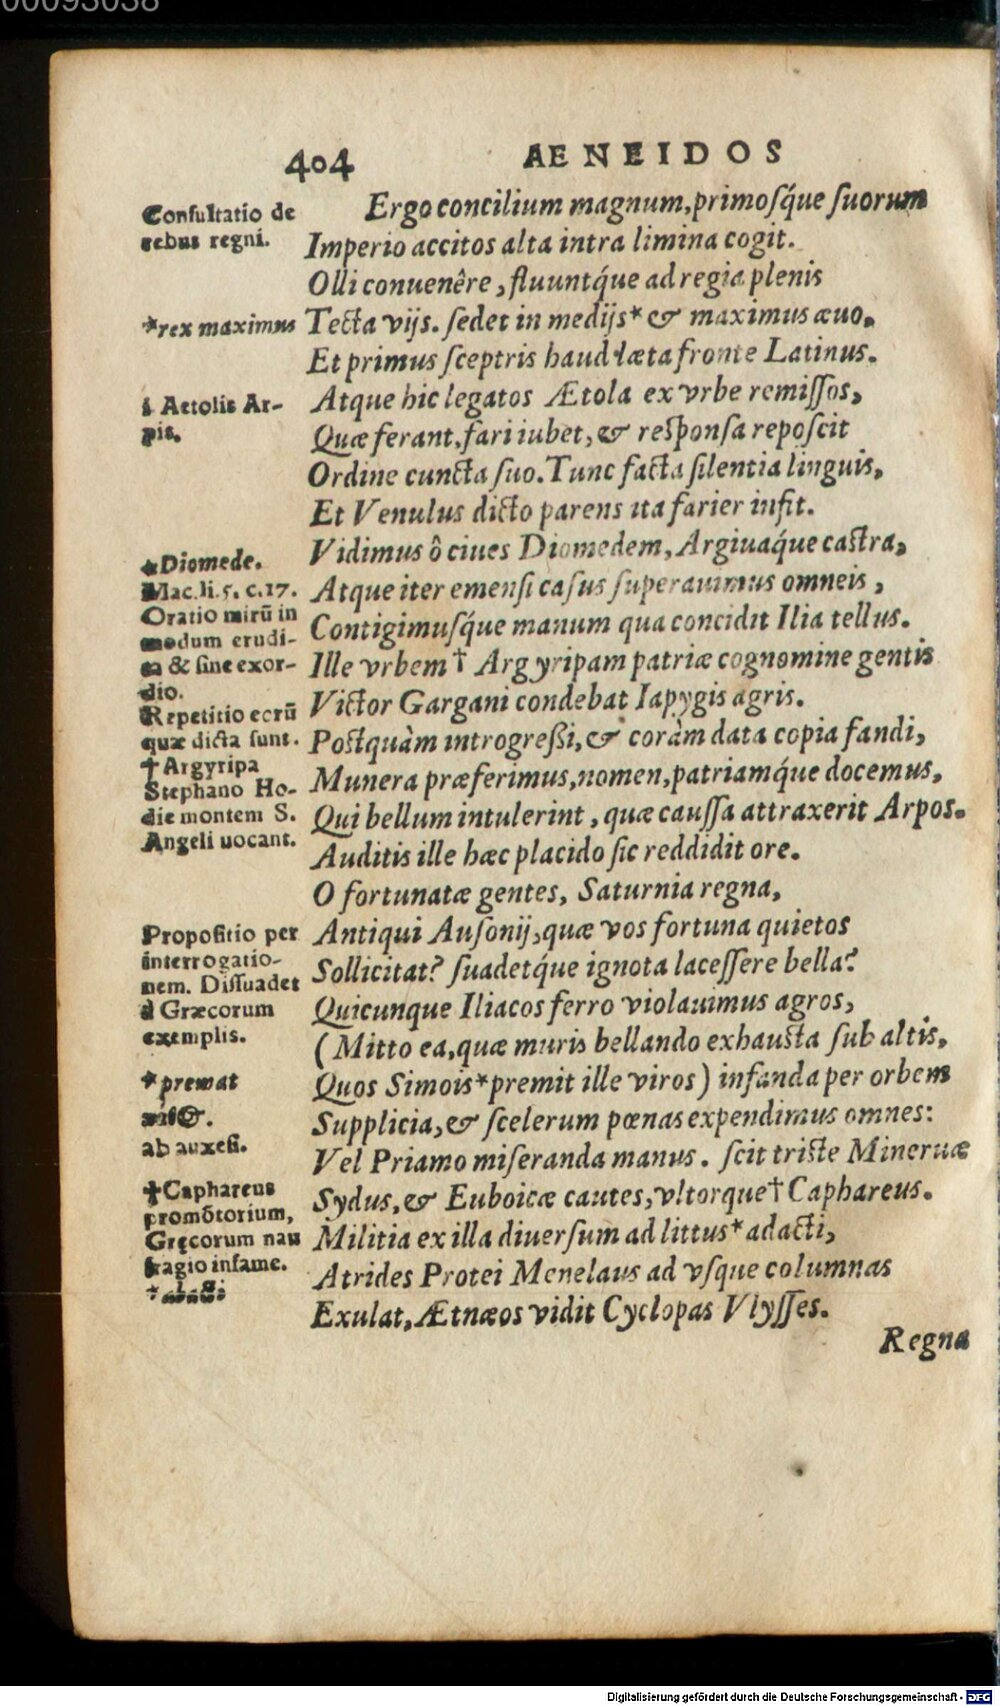 00093038
404 AENEIDOS
Consultatio de
rebus regni.
*rex maximus
i Aetolis Ar-
pis.
*Diomede.
Mac. li. 5. c. 17.
Oratio mirũ in
modum erudi-
ta & sine exor-
dio.
Repetitio eorũ
quæ dicta sunt.
†Argyripa
Stephano Ho-
die montem S.
Angeli uocant.
Propositio per
interrogatio-
nem. Dissuadet
à Græcorum
exemplis.
*premat
ab auxesi.
†Caphareus
promõtorium,
Gręcorum nau
fragio infame.
Ergo concilium magnum, primosq́ue suorum
Imperio accitos alta intra limina cogit.
Olli conuenêre, fluuntq́ue ad regia plenis
Tecta vijs. sedet in medijs* & maximus æuo.
Et primus sceptris haud læta fronte Latinus.
Atque hic legatos Ætola ex vrbe remissos,
Quæ ferant, fari iubet, & responsa reposcit
Ordine cuncta suo. Tunc facta silentia linguis,
Et Venulus dicto parens ita farier infit.
Vidimus ô ciues Diomedem, Argiuaq́ue castra,
Atque iter emensi casus superauimus omneis,
Contigimusq́ue manum qua concidit Ilia tellus.
Ille vrbem† Argyripam patriæ cognomine gentis
Victor Gargani condebat Iapygis agris.
Postquàm introgressi, & coràm data copia fandi,
Munera præferimus, nomen, patriamq́ue docemus,
Qui bellum intulerint, quæ caussa attraxerit Arpos.
Auditis ille hæc placido sic reddidit ore.
O fortunatæ gentes, Saturnia regna,
Antiqui Ausonij, quæ vos fortuna quietos
Sollicitat? suadetq́ue ignota lacessere bella?
Quicunque Iliacos ferro violauimus agros,
(Mitto ea, quæ muris bellando exhausta sub altis,
Quos Simois*premit ille viros) infanda per orbem
Supplicia, & scelerum pœnas expendimus omnes:
Vel Priamo miseranda manus. scit triste Mineruæ
Sydus, & Euboicæ cautes, vltorque† Caphareus.
Militia ex illa diuersum ad littus* adacti,
Atrides Protei Menelaus ad vsque columnas
Exulat, Ætnæos vidit Cyclopas Vlysses.
Regna
Digitalisierung gefördert durch die Deutsche Forschungsgemeinschaft - DFG